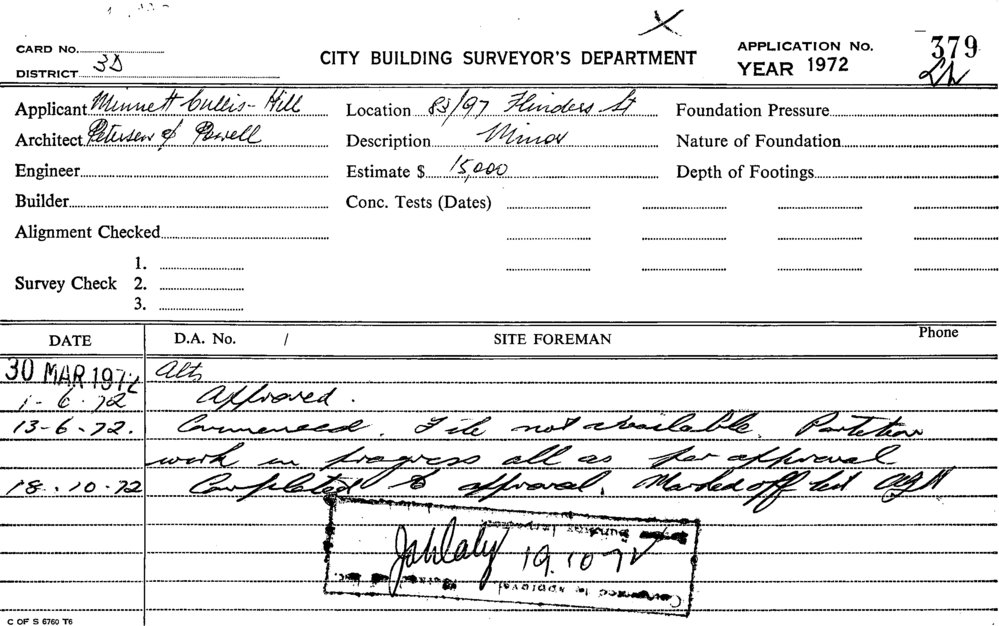 CARD No.
DISTRICT 3D
CITY BUILDING SURVEYOR'S DEPARTMENT
APPLICATION No. 379
YEAR 1972
Applicant Minnett Cullis-Hill
Location 83/97 Flinders St
Foundation Pressure
Architect Petersen & Powell
Description Minor
Nature of Foundation
Engineer
Estimate $ 15,000
Depth of Footings
Builder
Conc. Tests (Dates)
Alignment Checked
Survey Check
1.
2.
3.
DATE D.A. No. / SITE FOREMAN Phone
30 MAR 1972 Alts
1-6-72 Approved.
13-6-72. Commenced. File not available. Partition
work in progress all as per approval
18.10.72 Completed to approval. Marked off list
19.10.72
C OF S 6760 T6